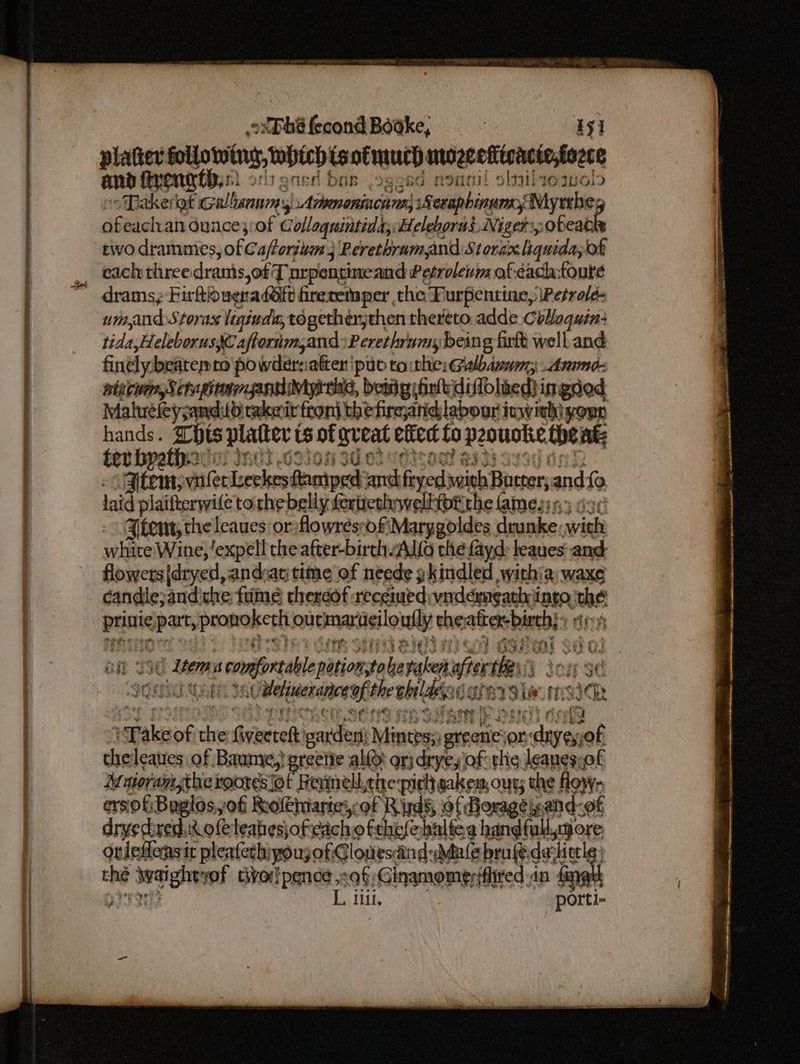 The second Booke, 151
plaster following, which is of much more efficacie, force
and strength.
Take of Galbanum, Ammoniacum, Seraphinum, Myrrhe,
of each an ounce, of Colloquintida, Heleborus Niger, of each
two drammes, of Castorium, Perethrum, and Storax liquida, of
each three drams, of Turpentine and Petroleum of each foure
drams, First you must fire temper the Turpentine, Petrole-
um, and Storax liquida, together, then thereto adde Colloquin-
tida, Heleborus, Castorium, and Perethrum, being first well and
finely beaten to powder: after put to the Galbanum, Ammo-
niacum, Serapinum, and Myrrhe, being first dissolued in good
Malmesey, and so take it from the fire, and labour it with your
hands. This plaster is of great effect to prouoke the af-
ter byrth.
Item, vse Leekes stamped and fryed with Butter, and so
laid plaisterwise to the belly serueth well for the same.
Item, the leaues or flowres of Marygoldes drunke with
white Wine, expell the after-birth. Also the sayd leaues and
flowers dryed, and at time of neede kindled with a waxe
candle, and the fume thereof receiued vnderneath into the
priuie part, prouoketh out marueilously the after-birth.
Item a comfortable potion, to be taken after the
deliuerance of the childe.
Take of the sweetest garden Mintes, greene or drye, of
the leaues of Baume, greene also or drye, of the leaues of
Maioram, the rootes of Fennell, the pith taken out, the flow-
ers of Buglos, of Rosemarie, of Rinds, of Borage, and of
drye red Rose leaues, of each of these halfe a handfull, more
or lesse as it pleaseth you, of Cloues and Mase brused a little
the waight of two pence, of Cinamome, slised in small
L iiii. porti-